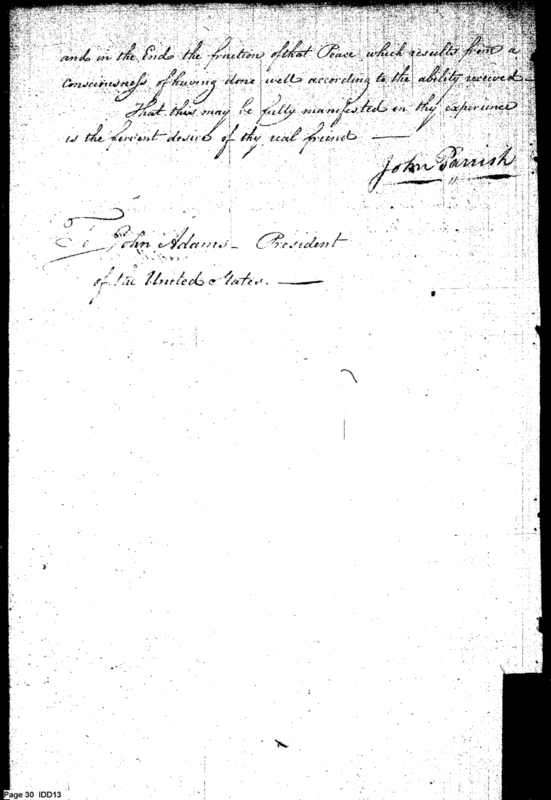 and in the End the fruition of that Peace which results from a
consciousness of having done well according to the ability received —
That this may be fully manifested in thy experience
is the fervent desire of thy real friend —
John Parrish
To John Adams – President
of the United States. —
Page 30 IDD13